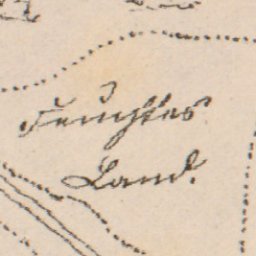 Feuchtes
Land.